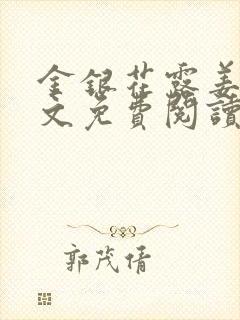 金銀花露姜
文免費閱讀
郭茂倩